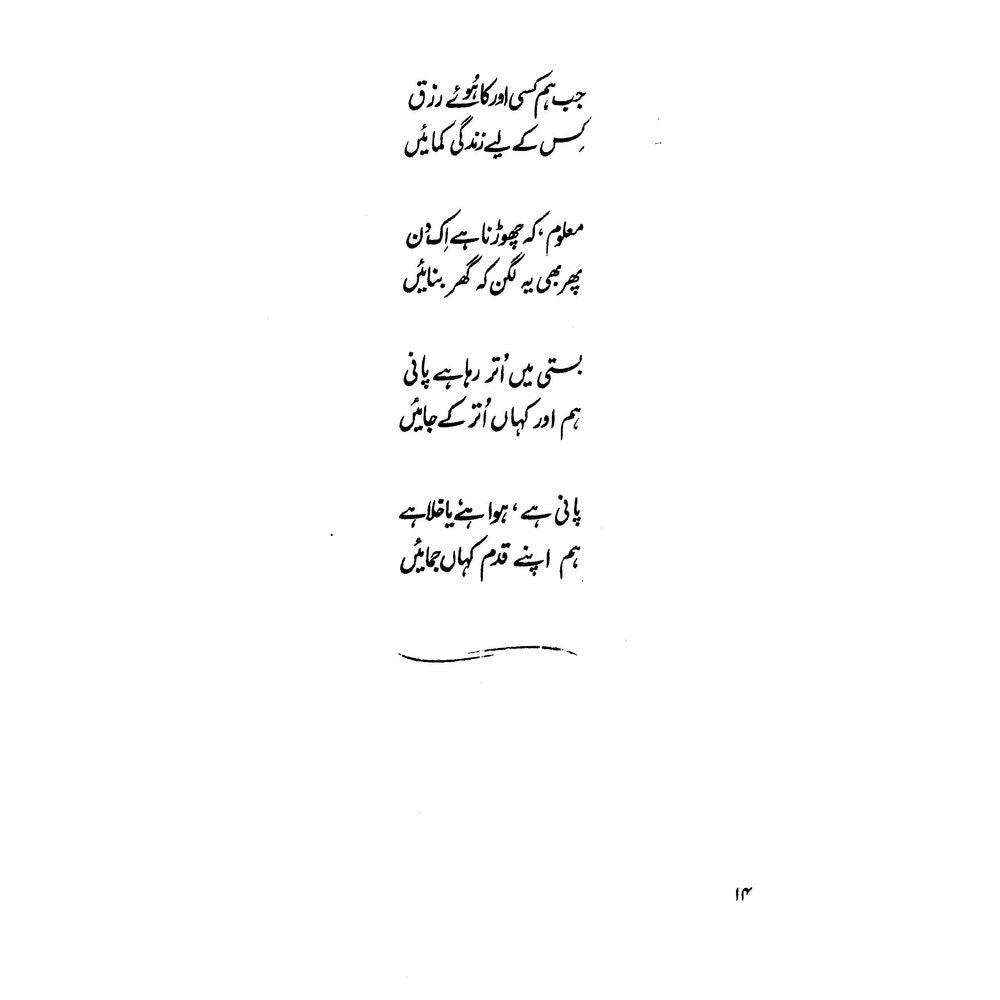 جب ہم کسی اور کا ہُوئے رزق
کِس کے لیے زندگی کمائیں
معلوم، کہ چھوڑنا ہے اِک دن
پھر بھی یہ لگن کہ گھر بنائیں
بستی میں اُتر رہا ہے پانی
ہم اور کہاں اُتر کے جائیں
پانی ہے، ہوا ہے یا خلا ہے
ہم اپنے قدم کہاں جمائیں
۱۴